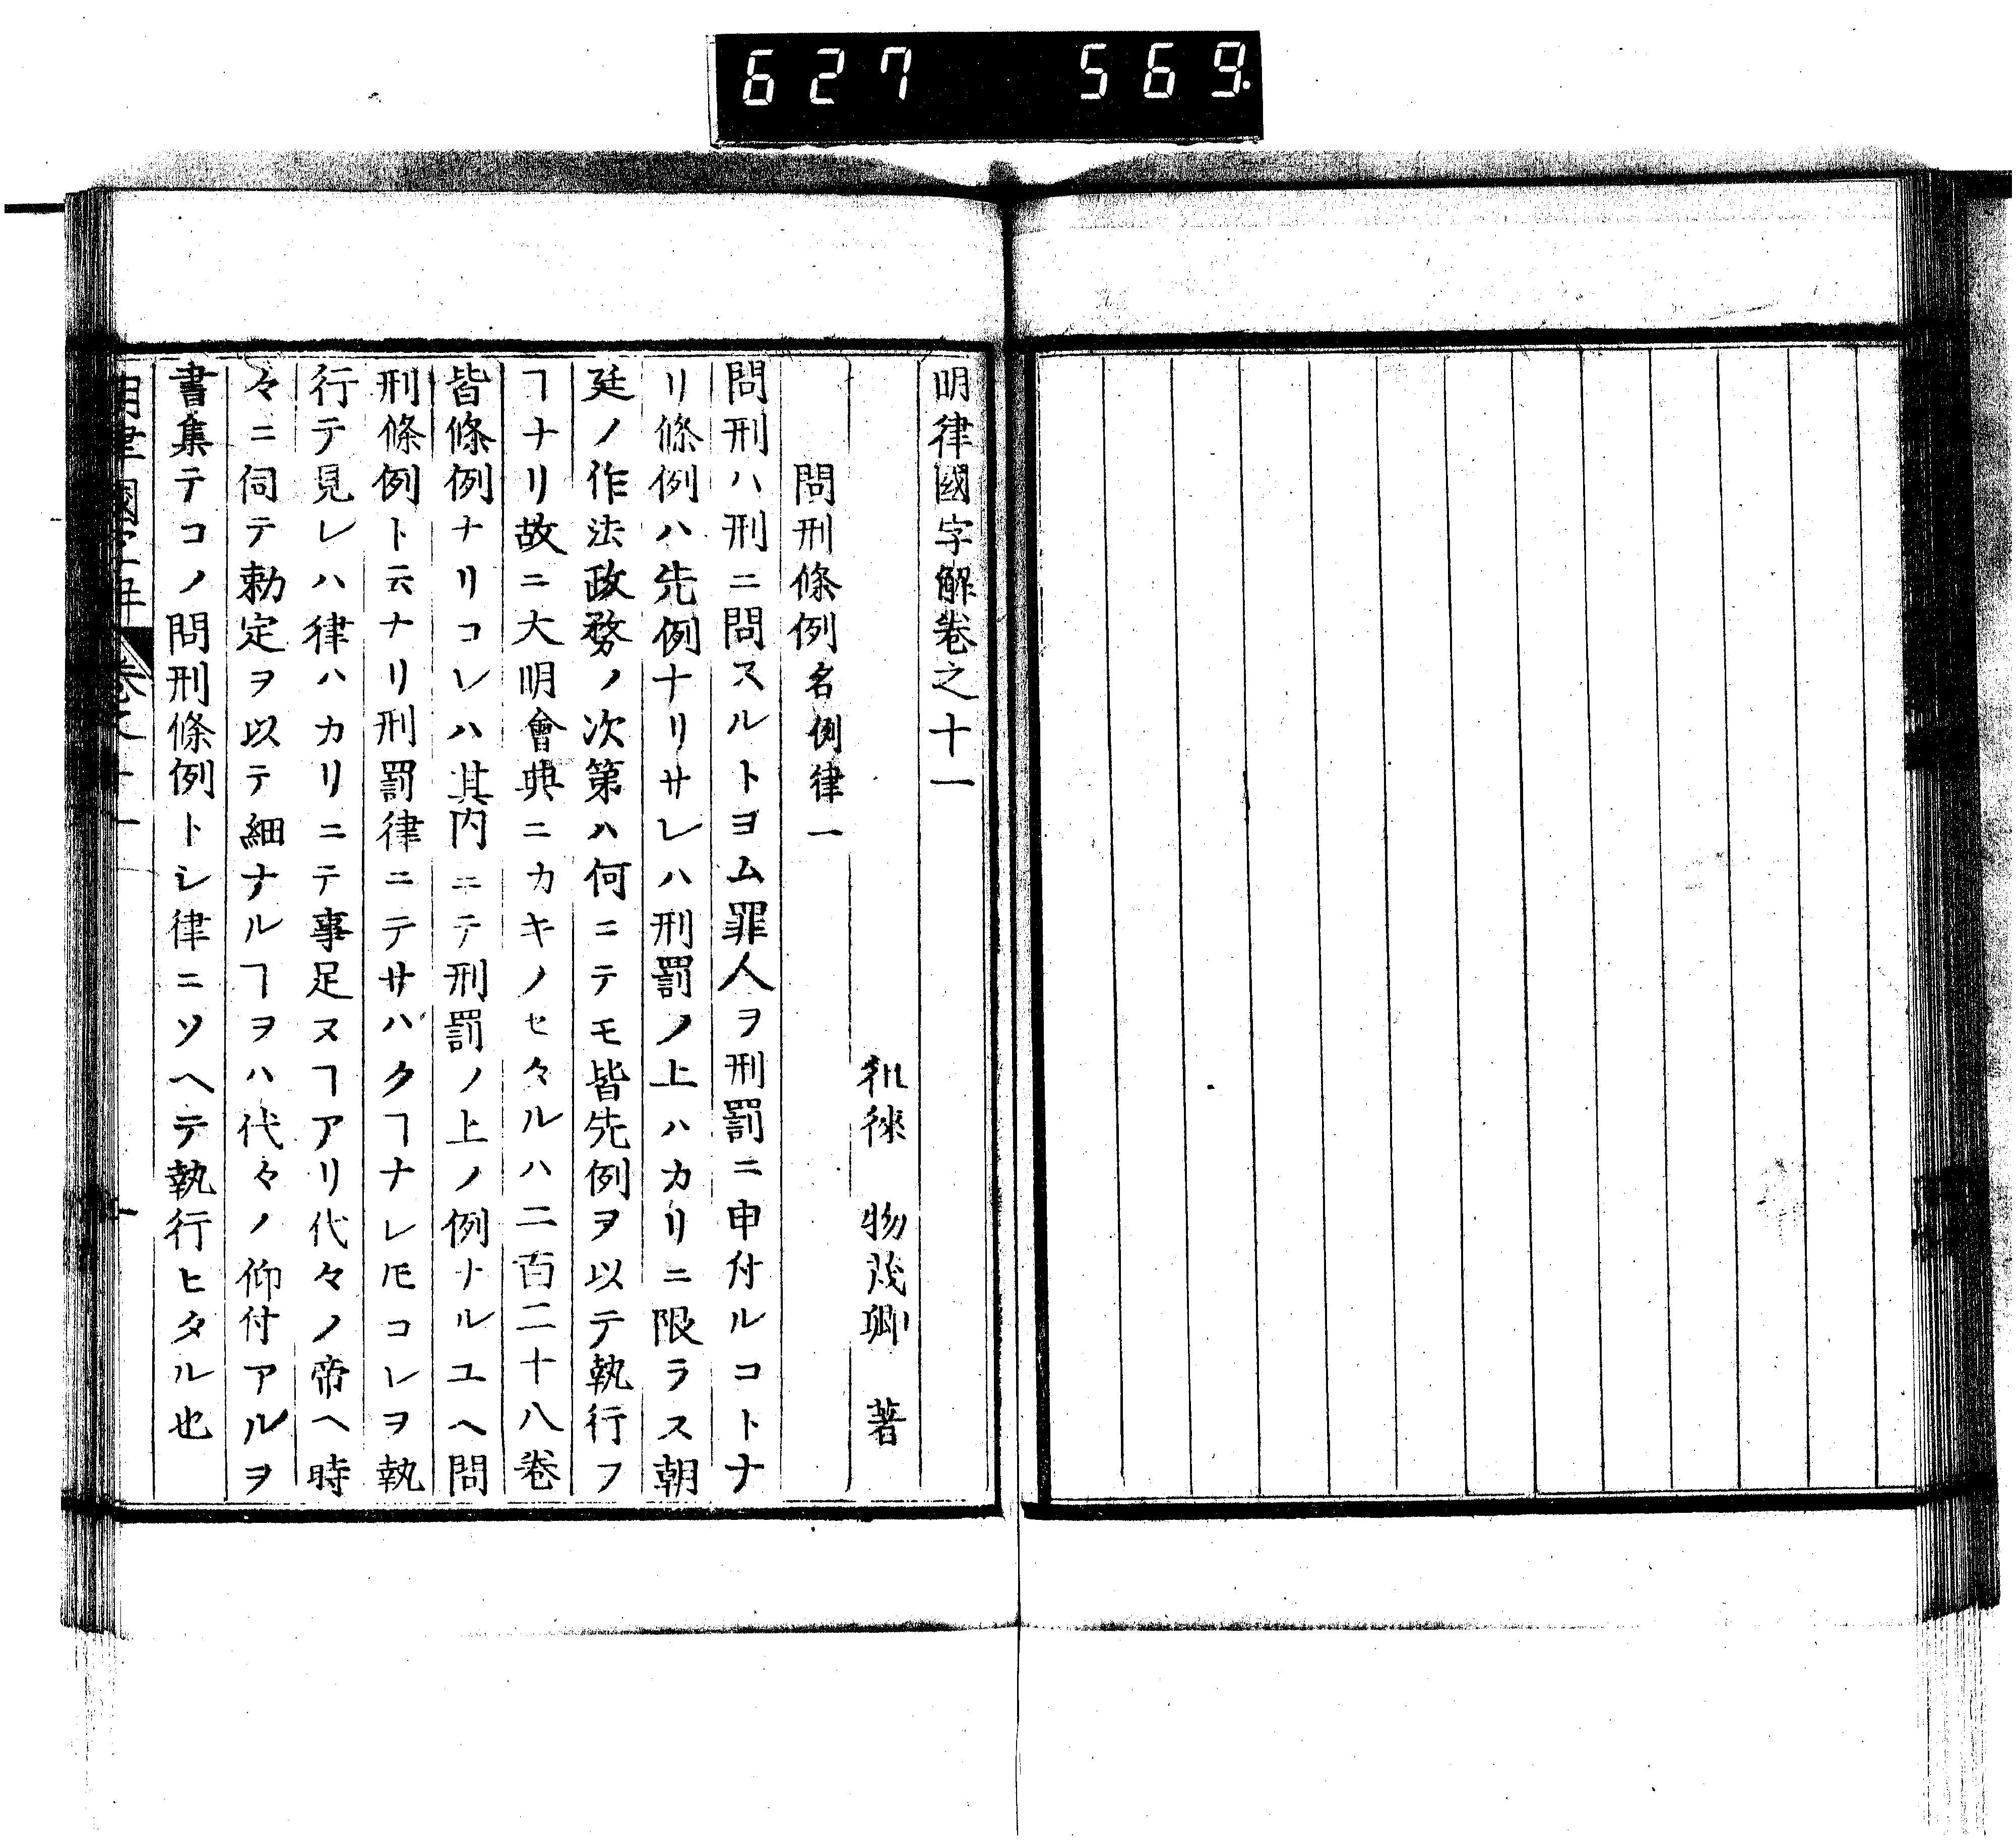 627 569.
明律國字解卷之十一
徂徠 物茂卿 著
問刑條例名例律一
問刑ハ刑ニ問スルトヨム罪人ヲ刑罰ニ申付ルコトナ
リ條例ハ先例ナリサレハ刑罰ノ上ハカリニ限ラス朝
廷ノ作法政務ノ次第ハ何ニテモ皆先例ヲ以テ執行フ
ヿナリ故ニ大明會典ニカキノセタルハ二百二十八卷
皆條例ナリコレハ其内ニテ刑罰ノ上ノ例ナルユヘ問
刑條例ト云ナリ刑罰律ニテサハクヿナレ𪜈コレヲ執
行テ見レハ律ハカリニテ事足ヌヿアリ代々ノ帝ヘ時
々ニ伺テ勅定ヲ以テ細ナルヿヲハ代々ノ仰付アルヲ
書集テコノ問刑條例トシ律ニソヘテ執行ヒタル也
明律國字解 卷之十一 一